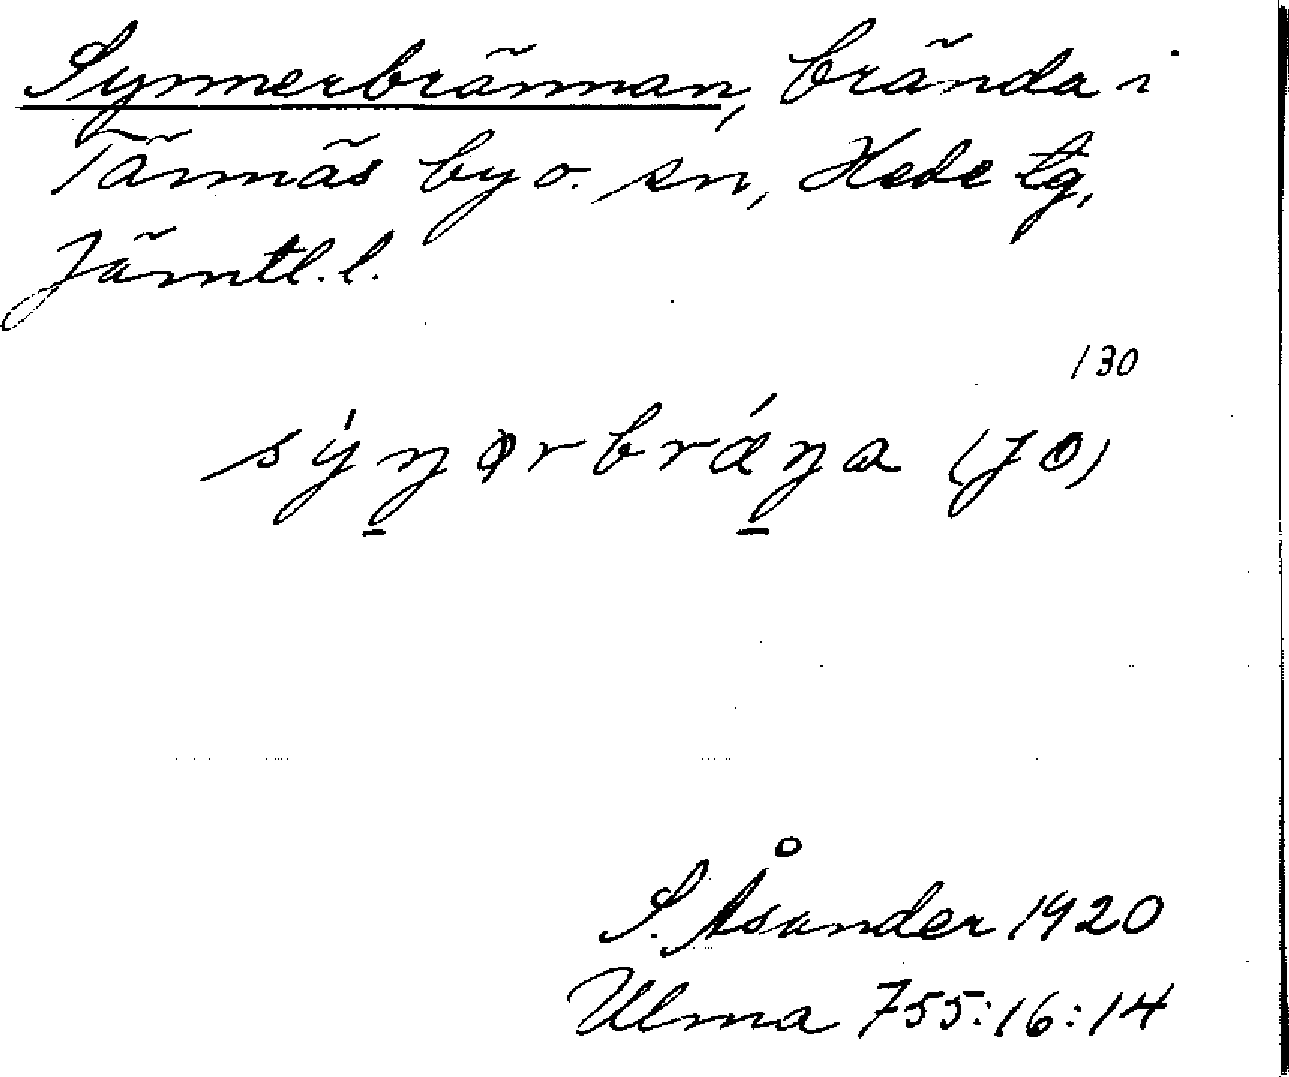 Synnerbrännan, brända i
Tännäs by o. sn, Hede tg,
Jämtl. l.
130
sýŋørbráŋa (JO)
S. Åsander 1920
Ulma 755:16:14